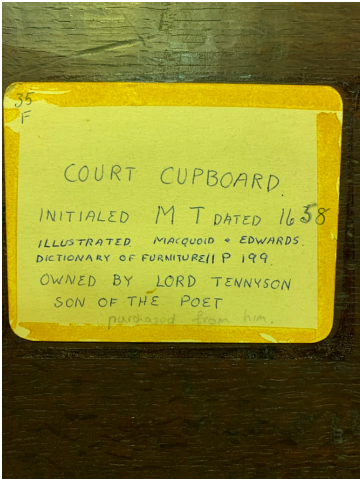 35
F
COURT CUPBOARD.
INITIALED M T DATED 1658
ILLUSTRATED. MACQUOID & EDWARDS.
DICTIONARY OF FURNITURE II P 199.
OWNED BY LORD TENNYSON
SON OF THE POET
purchased from him.